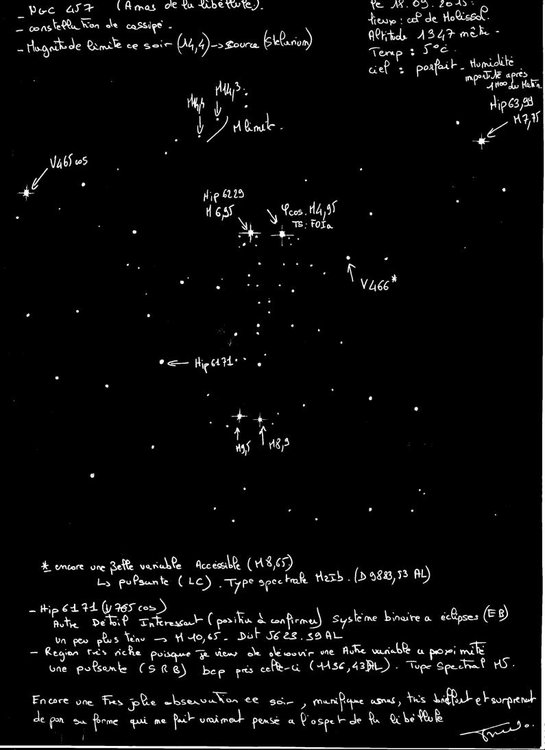 - NGC 457 (Amas de la libellule).
- constellation de cassiopé.
- Magnitude limite ce soir (14,4) -> source (Stelarium)
Le 18.09.2015.
Altitude 1347 mètre.
Temp : 5°c.
ciel : parfait - Humidité
importante après
1H00 du Matin
Hip 63,99
M 7,75
M14,3
M limit.
V465 cas
Hip 6229
M 6,95
φ cas. M4,95
TS: F0Ia
V466*
Hip 6171
M9,5
M8,9
* encore une Belle variable Accessible (M 8,65)
↳ pulsante (LC). Type spectrale M2Ib. (D 9883,53 AL)
- Hip 6171 (V765 cas)
Autre Détail Interessant (position à confirmer) système binaire a éclipses (EB)
un peu plus tenu -> M 10,65. Dist 5623.39 AL
- Région très riche puisque je viens de decouvrir une Autre variable a proximité
une pulsante (SRB) bcp près celle-ci (1136,43 AL). Type Spectral M5.
Encore une Très jolie observation ce soir, magnifique amas, très brillant et surprenant
de par sa forme qui me fait vraiment pensé a l'aspet de la libellule